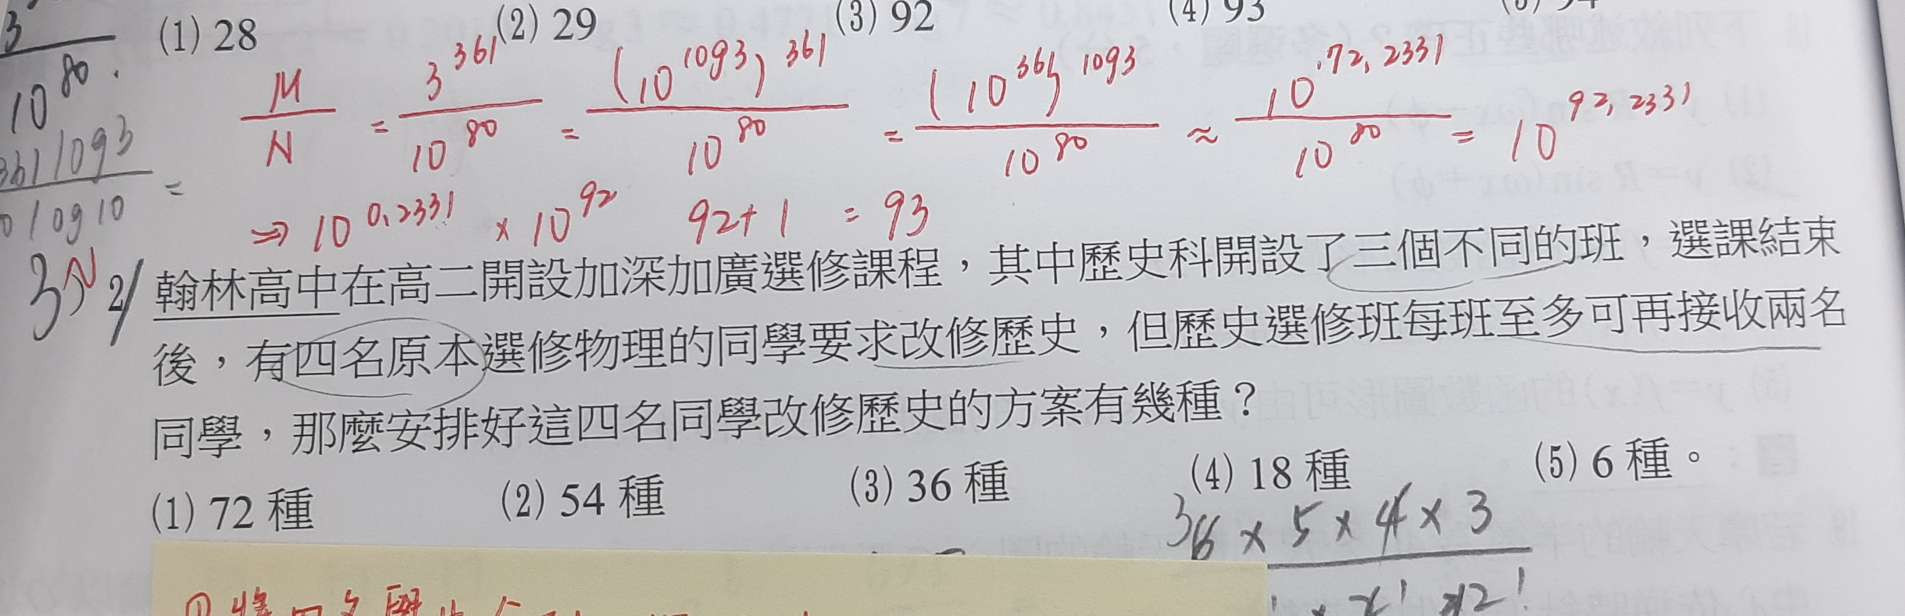 3
(1) 28 (2) 29 (3) 92 (4) 93
10^80.
M/N = 3^361/10^80 = (10^1093)^361/10^80 = (10^361)^1093/10^80 ≈ 10^.72,2331/10^80 = 10^92,2331
361 log3
log10 =
⇒ 10^0.2331 × 10^92 92+1 = 93
2 翰林高中在高二開設加深加廣選修課程，其中歷史科開設了三個不同的班，選課結束
後，有四名原本選修物理的同學要求改修歷史，但歷史選修班每班至多可再接收兩名
同學，那麼安排好這四名同學改修歷史的方案有幾種？
(1) 72 種 (2) 54 種 (3) 36 種 (4) 18 種 (5) 6 種。
6 × 5 × 4 × 3